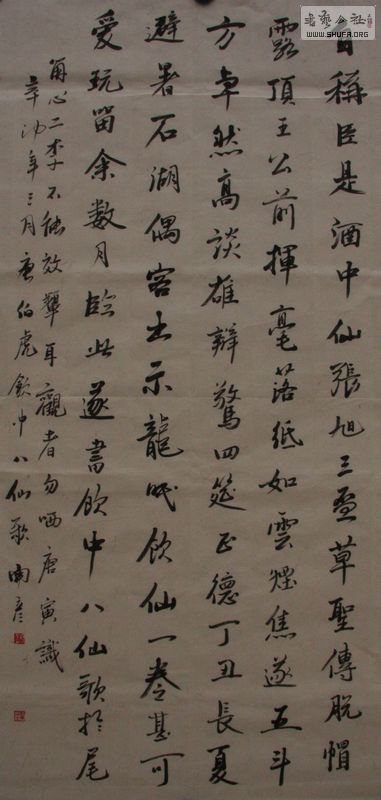 自稱臣是酒中仙張旭三盃草聖傳脫帽
露頂王公前揮毫落紙如雲煙焦遂五斗
方卓然高談雄辯驚四筵正德丁丑長夏
避暑石湖偶客出示龍眠飲仙一卷甚可
愛玩留余數月臨此遂書飲中八仙歌於尾
不能效顰耳觀者勿哂唐寅識
辛卯年三月唐伯虎飲中八仙歌
書藝公社
WWW.SHUFA.ORG